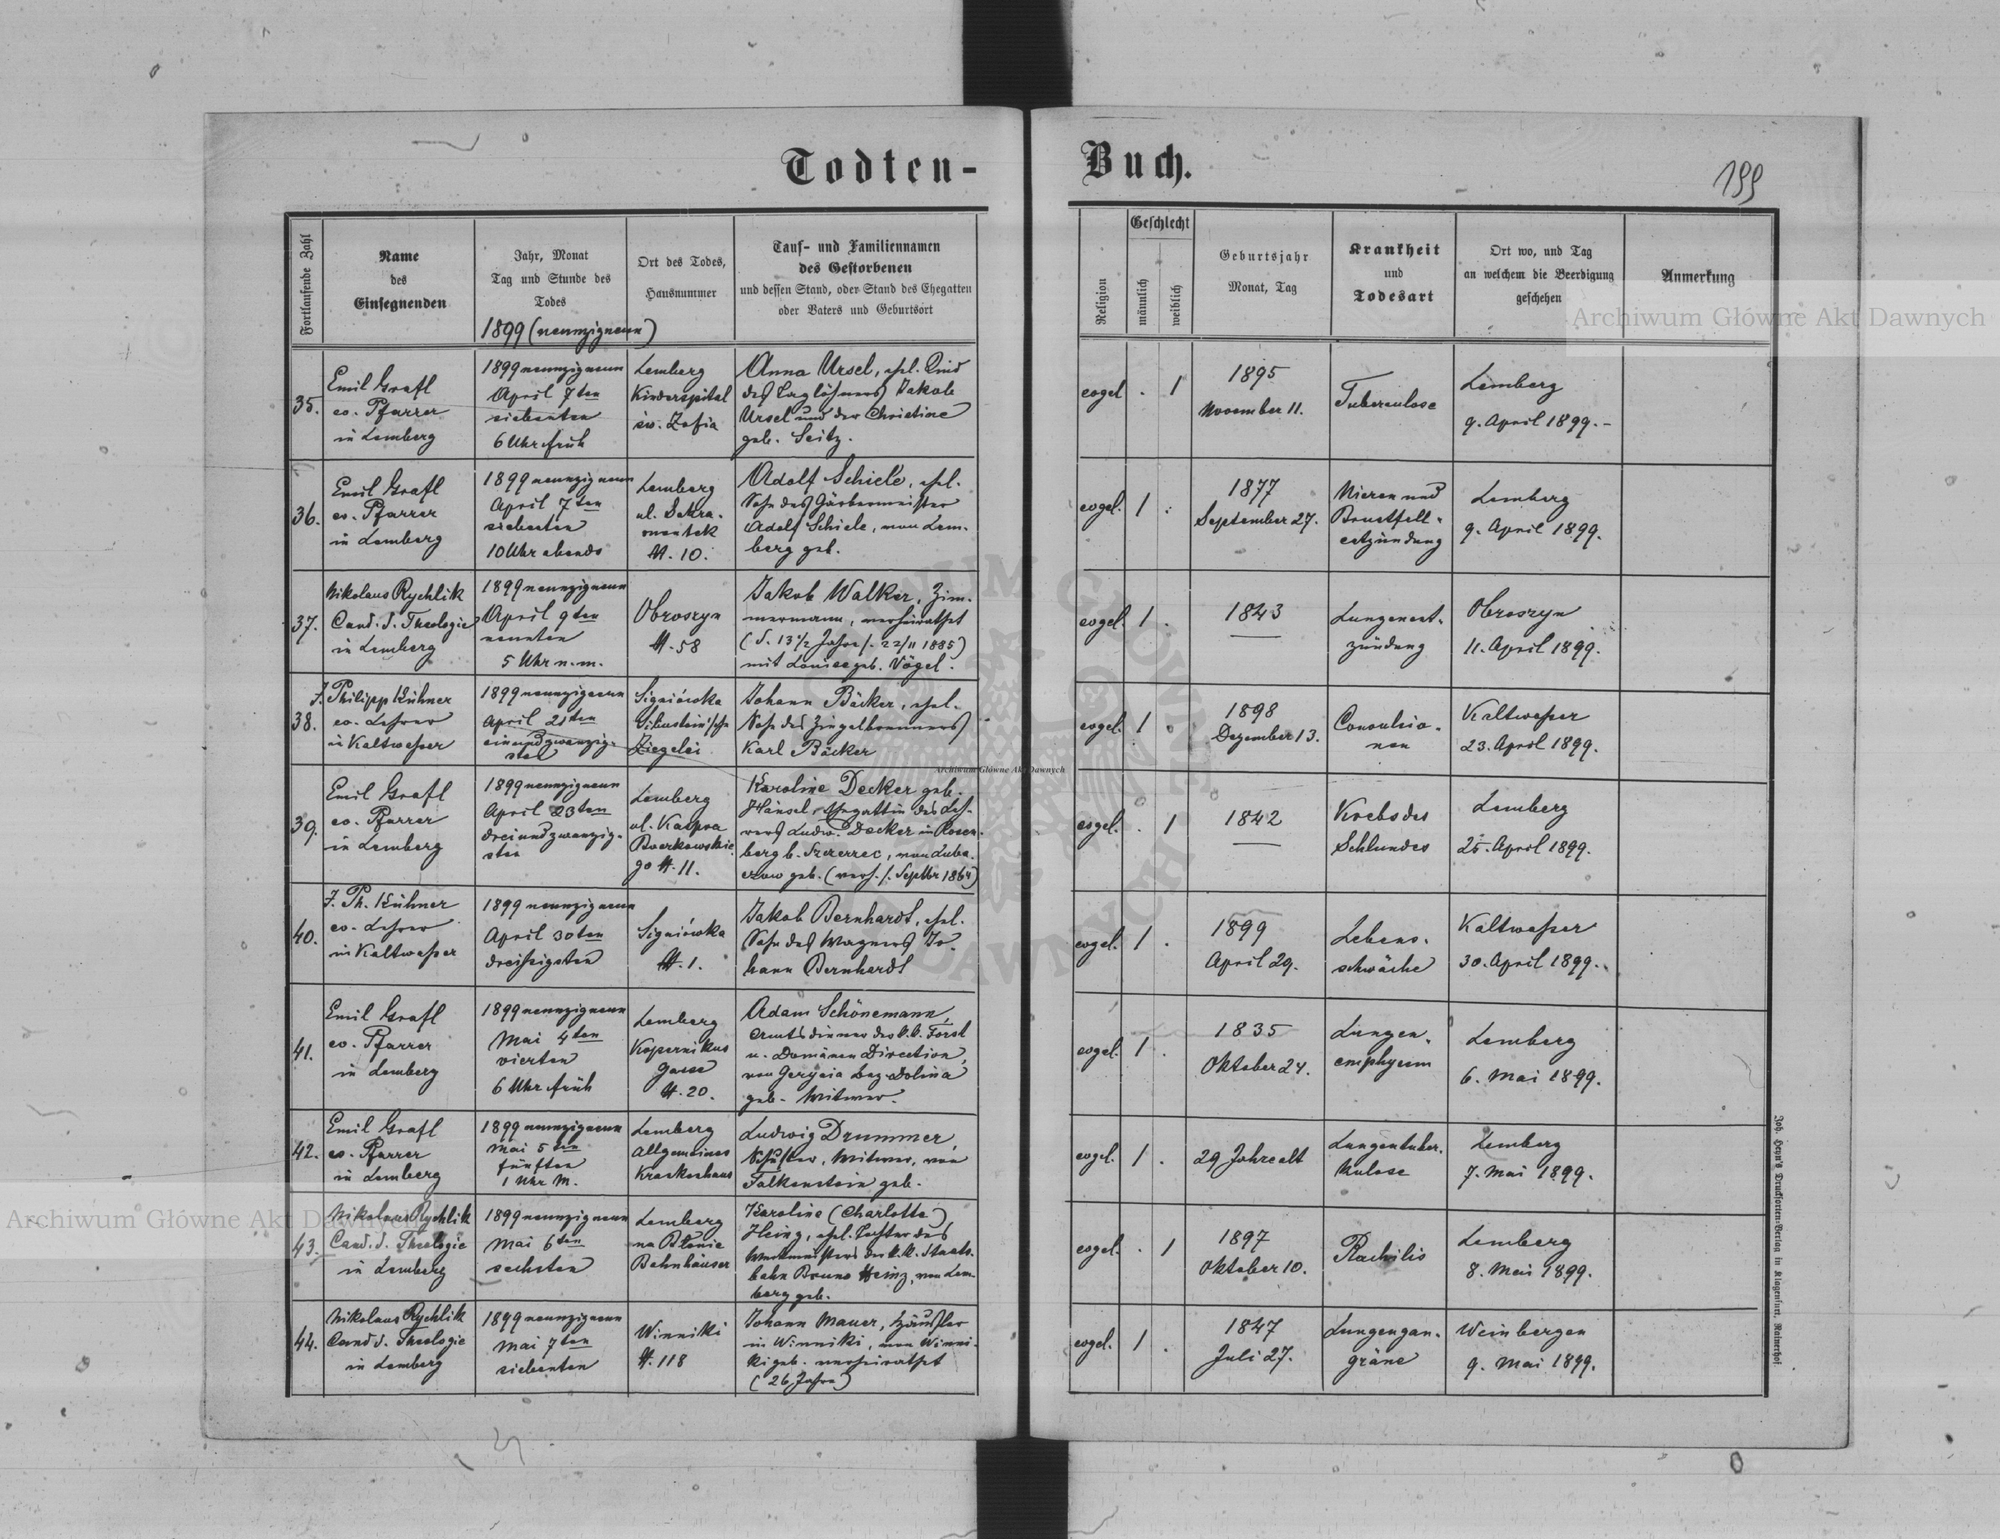 Todten-
Buch.
199
Fortlaufende Zahl
Name
des
Einsegnenden
Jahr, Monat
Tag und Stunde des
Todes
1899 (neunzigneun)
Ort des Todes,
Hausnummer
Tauf- und Familiennamen
des Gestorbenen
und dessen Stand, oder Stand des Ehegatten
oder Vaters und Geburtsort
Religion
Geschlecht
männlich
weiblich
Geburtsjahr
Monat, Tag
Krankheit
und
Todesart
Ort wo, und Tag
an welchem die Beerdigung
geschehen
Anmerkung
35.
Emil Grafl
ev. Pfarrer
in Lemberg
1899 neunzigneun
April 7ten
siebenten
6 Uhr früh
Lemberg
Kinderspital
św. Zofia
Anna Ursel, ehl. Kind
des Taglöhners Jakob
Ursel und der Christine
geb. Seitz.
evgel
. 1
1895
November 11.
Tuberculose
Lemberg
9. April 1899. -
36.
Emil Grafl
ev. Pfarrer
in Lemberg
1899 neunzigneun
April 7ten
siebenten
10 Uhr abends
Lemberg
ul. Sakra-
mentek
N. 10.
Adolf Schiele, ehl.
Sohn des Gärbermeister
Adolf Schiele, von Lem-
berg geb.
evgel.
1 .
1877
September 27.
Nieren und
Brustfell-
entzündung
Lemberg
9. April 1899.
37.
Nikolaus Rychlik
Cand. d. Theologie
in Lemberg
1899 neunzigneun
April 9ten
neunten
5 Uhr n. m.
Obroszyn
N. 58
Jakob Walker, Zim-
mermann, verheirathet
(d. 13 1/2 Jahre s. 22/11 1885)
mit Louise geb. Vögel.
evgel.
1 .
1843
Lungenent-
zündung
Obroszyn
11. April 1899.
38.
J. Philipp Kühner
ev. Lehrer
in Kaltwasser
1899 neunzigneun
April 21ten
einundzwanzig-
sten
Signiówka
Ziegelei
Johann Bäcker, ehl.
Sohn des Ziegelbrenners
Karl Bäcker
evgel.
1 .
1898
Dezember 13.
Convulsio-
nen
Kaltwasser
23. April 1899.
39.
Emil Grafl
ev. Pfarrer
in Lemberg
1899 neunzigneun
April 23ten
dreiundzwanzig-
sten
Lemberg
ul. Kaspra
Boczkowskie
go N. 11.
Karoline Decker geb.
Hänsel, Ehegattin des Leh-
rers Ludw. Decker in Rosen-
berg b. Szczerzec, von Luba-
czow geb. (verh. s. Septbr 1864)
evgel.
. 1
1842
Krebs des
Schlundes
Lemberg
25. April 1899.
40.
J. Ph. Kühner
ev. Lehrer
in Kaltwasser
1899 neunzigneun
April 30ten
dreißigsten
Signiówka
N. 1.
Jakob Bernhardt, ehl.
Sohn des Wagners Jo-
hann Bernhardt
evgel.
1 .
1899
April 29.
Lebens-
schwäche
Kaltwasser
30. April 1899.
41.
Emil Grafl
ev. Pfarrer
in Lemberg
1899 neunzigneun
Mai 4ten
vierten
6 Uhr früh
Lemberg
Kopernikus
gasse
N. 20.
Adam Schönemann,
Amtsdiener der k. k. Forst
u. Domänen Direction,
von Gerynia bez. Dolina
geb. Witwer.
evgel.
1 .
1835
Oktober 24.
Lungen-
emphysem
Lemberg
6. Mai 1899.
42.
Emil Grafl
ev. Pfarrer
in Lemberg
1899 neunzigneun
Mai 5ten
fünften
1 Uhr M.
Lemberg
Allgemeines
Krankenhaus
Ludwig Drummer,
Schuster, Witwer, von
Falkenstein geb.
evgel.
1 .
29 Jahre alt
Lungentuber-
kulose
Lemberg
7. Mai 1899.
43.
Nikolaus Rychlik
Cand. d. Theologie
in Lemberg
1899 neunzigneun
Mai 6ten
sechsten
Lemberg
na Błonie
Bahnhäuser
Karoline (Charlotte)
Heinz, ehl. Tochter des
Werkmeisters der k. k. Staats-
bahn Bruno Heinz, von Lem-
berg geb.
evgel.
. 1
1897
Oktober 10.
Rachitis
Lemberg
8. Mai 1899.
44.
Nikolaus Rychlik
Cand. d. Theologie
in Lemberg
1899 neunzigneun
Mai 7ten
siebenten
Winniki
N. 118
Johann Mauer, Häusler
in Winniki, von Winni-
ki geb. verheirathet
(26 Jahre)
evgel.
1 .
1847
Juli 27.
Lungengan-
gräne
Weinbergen
9. Mai 1899.
Joh. Heyn's Drucksorten-Verlag in Klagenfurt, Rainerhof
Archiwum Główne Akt Dawnych
Archiwum Główne Akt Dawnych
Archiwum Główne Akt Dawnych
ARCHIWUM GŁÓWNE AKT DAWNYCH